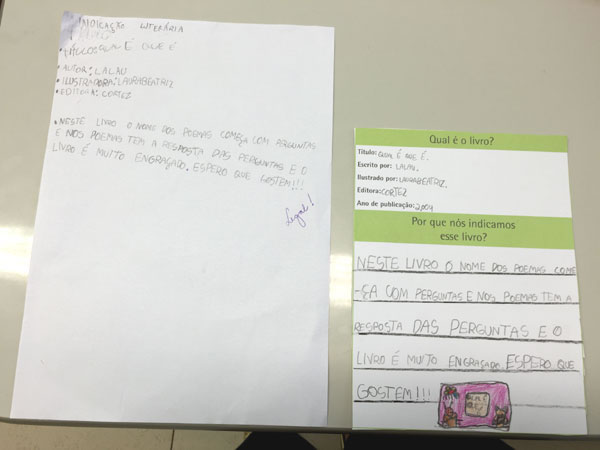 INDICAÇÃO LITERÁRIA
TÍTULO: QUAL É QUE É
• AUTOR: LALAU
• ILUSTRADORA: LAURABEATRIZ
• EDITORA: CORTEZ
• NESTE LIVRO O NOME DOS POEMAS COMEÇA COM PERGUNTAS
E NOS POEMAS TEM A RESPOSTA DAS PERGUNTAS E O
LIVRO É MUITO ENGRAÇADO. ESPERO QUE GOSTEM!!!
Legal!
Qual é o livro?
Título: QUAL É QUE É.
Escrito por: LALAU.
Ilustrado por: LAURABEATRIZ.
Editora: CORTEZ
Ano de publicação: 2004
Por que nós indicamos
esse livro?
NESTE LIVRO O NOME DOS POEMAS COME
-ÇA COM PERGUNTAS E NOS POEMAS TEM A
RESPOSTA DAS PERGUNTAS E O
LIVRO É MUITO ENGRAÇADO. ESPERO QUE
GOSTEM!!!